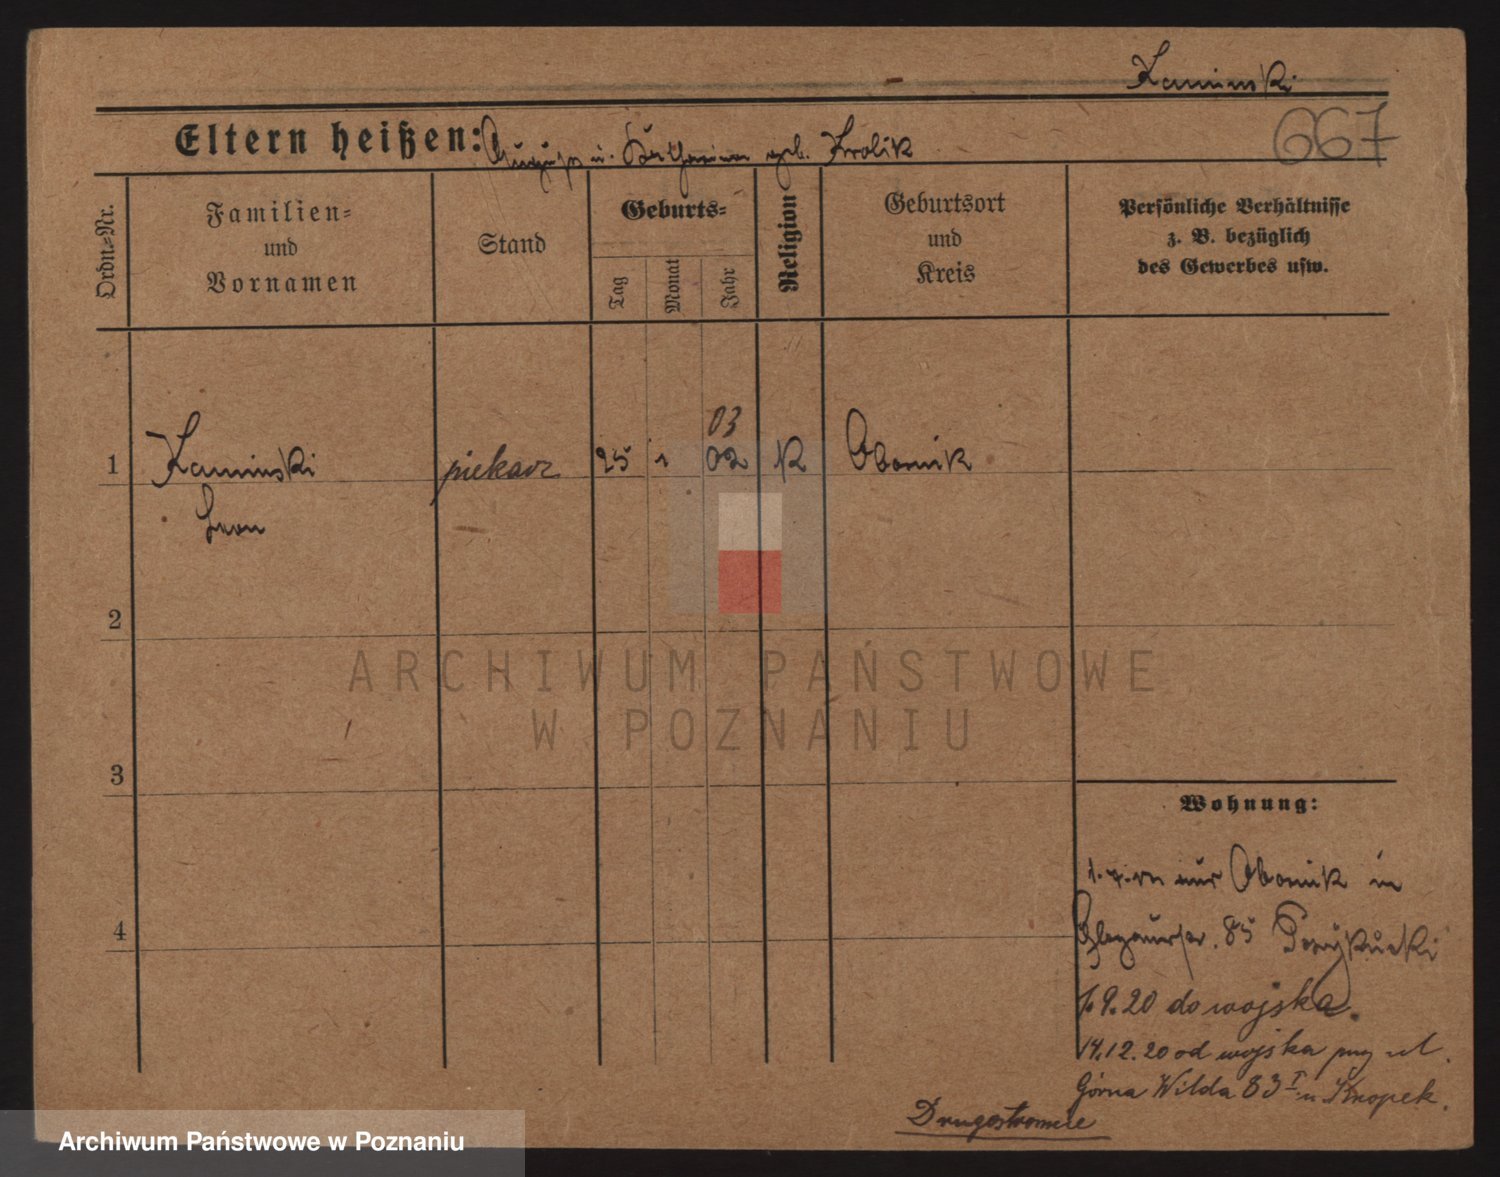 Kaminski
667
Eltern heißen: u. Katharina geb. Krolik
Ordn.=Nr.
Familien=
und
Vornamen
Stand
Geburts=
Tag
Monat
Jahr
Religion
Geburtsort
und
Kreis
Persönliche Verhältnisse
z. B. bezüglich
des Gewerbes usw.
03
1 Kaminski piekarz 25 1 02 K Obornik
Leon
2
3
4
ARCHIWUM PAŃSTWOWE
W POZNANIU
Wohnung:
Obornik in
85
9.20 do wojska.
14.12.20 od wojska przy ul.
Górna Wilda 83 I u Knopek.
Drugostronnie
Archiwum Państwowe w Poznaniu